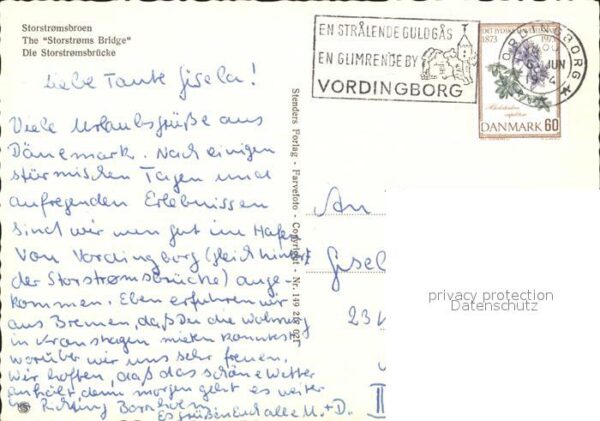 Storstrømsbroen
The "Storstrøms Bridge"
Die Storstrømsbrücke
EN STRÅLENDE GULDGÅS
EN GLIMRENDE BY
VORDINGBORG
1873 1973
DANMARK 60
VORDINGBORG
JUN
Liebe Tante Gisela!
Viele Urlaubsgrüße aus
Dänemark. Nach einigen
stürmischen Tagen und
aufregenden Erlebnissen
sind wir nun gut im Hafen
von Vordingborg (gleich hinter
der Storstrømsbrücke) ange-
kommen. Eben erfuhren wir
aus Bremen, daß Du die Wohnung
in Kranshagen mieten konntest
worüber wir uns sehr freuen.
Wir hoffen, daß das schöne Wetter
anhält, denn morgen geht es weiter
in Richtung Bornholm.
Es grüßen Euch alle M. + D.
Stenders Forlag - Farvefoto - Copyright - Nr. 149 218 021
An
Gisel
23
II
privacy protection
Datenschutz